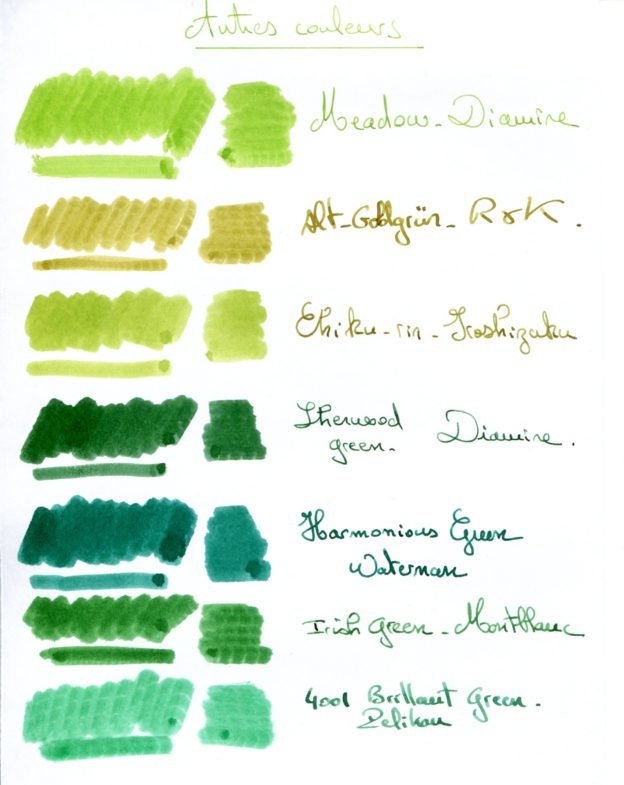 Autres couleurs
Meadow - Diamine
Alt-Goldgrün - R&K.
Chiku-rin - Iroshizuku
Sherwood Diamine.
green -
Harmonious Green
Waterman
Irish Green - Montblanc
4001 Brillant Green -
Pelikan